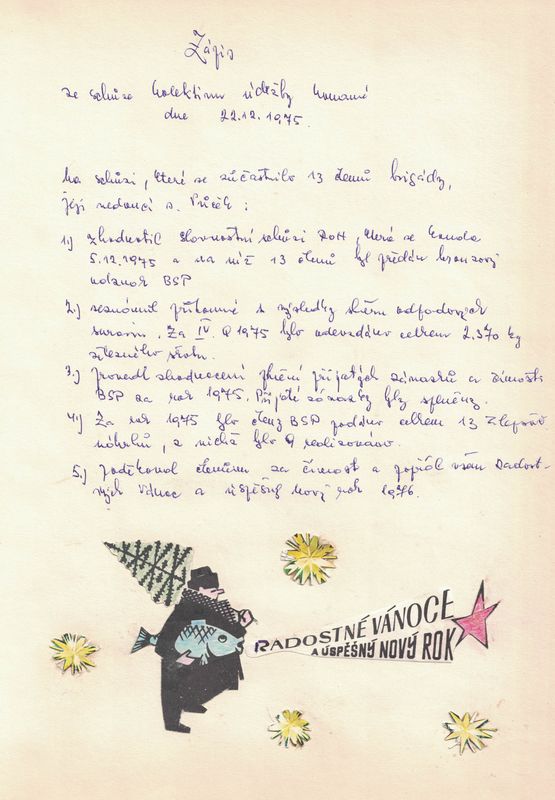 Zápis
ze schůze kolektivu údržby konané
dne 22.12.1975.
Na schůzi, které se zúčastnilo 13 členů brigády,
její vedoucí s.
1.) zhodnotil slavnostní schůzi ROH, která se konala
5.12.1975 a na níž 13 členů byl předán bronzový
odznak BSP
2.) seznámil přítomné s výsledky sběru odpadových
surovin. Za IV. Q 1975 bylo odevzdáno celkem 2.370 kg
železného šrotu.
3.) Provedl zhodnocení plnění přijatých závazků a činnosti
BSP za rok 1975. Přijaté závazky byly splněny.
4.) Za rok 1975 bylo členy BSP podáno celkem 13 zlepšov.
návrhů, z nichž bylo 9 realizováno.
5.) Poděkoval členům za činnost a popřál všem Radost-
ných Vánoc a úspěšný nový rok 1976.
RADOSTNÉ VÁNOCE
A ÚSPĚŠNÝ NOVÝ ROK